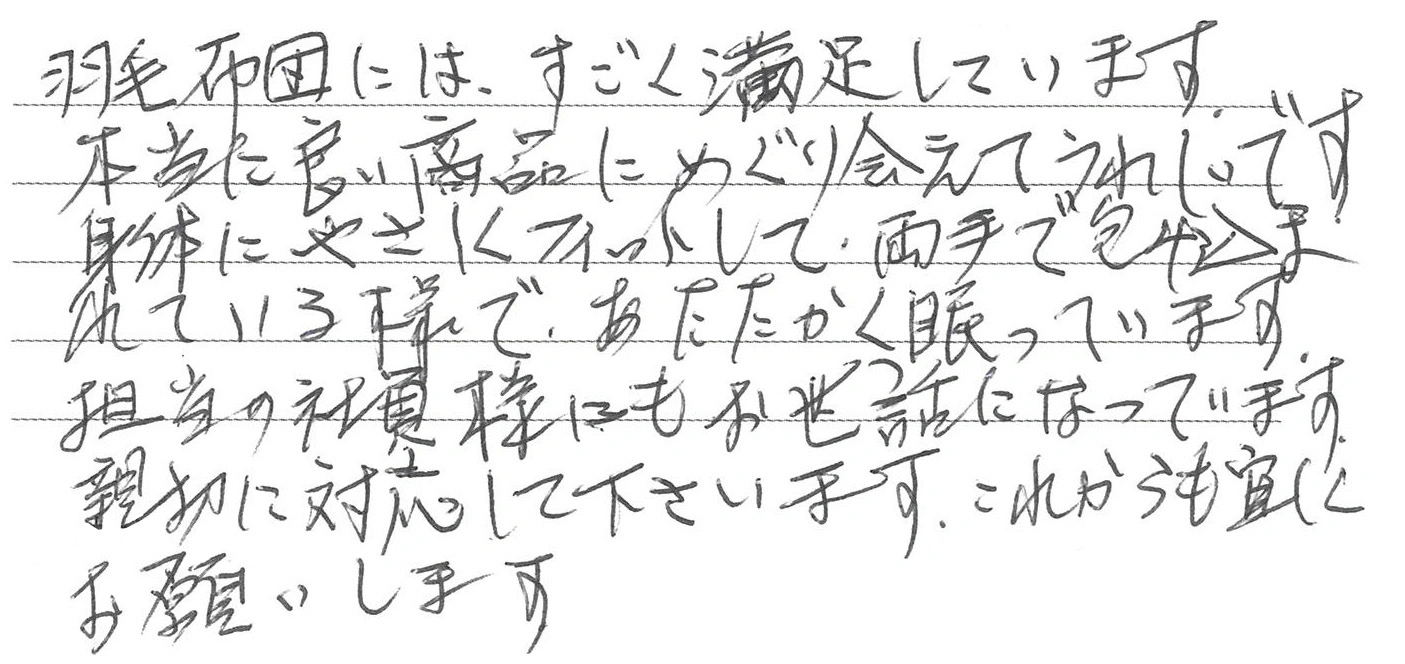 羽毛布団には、すごく満足しています.
本当に良い商品にめぐり会えてうれしいです
身体にやさしくフィットして、両手で包み込ま
れている様で、あたたかく眠っています.
担当の社員様にもお世話になっています.
親切に対応して下さいます.これからも宜しく
お願いします